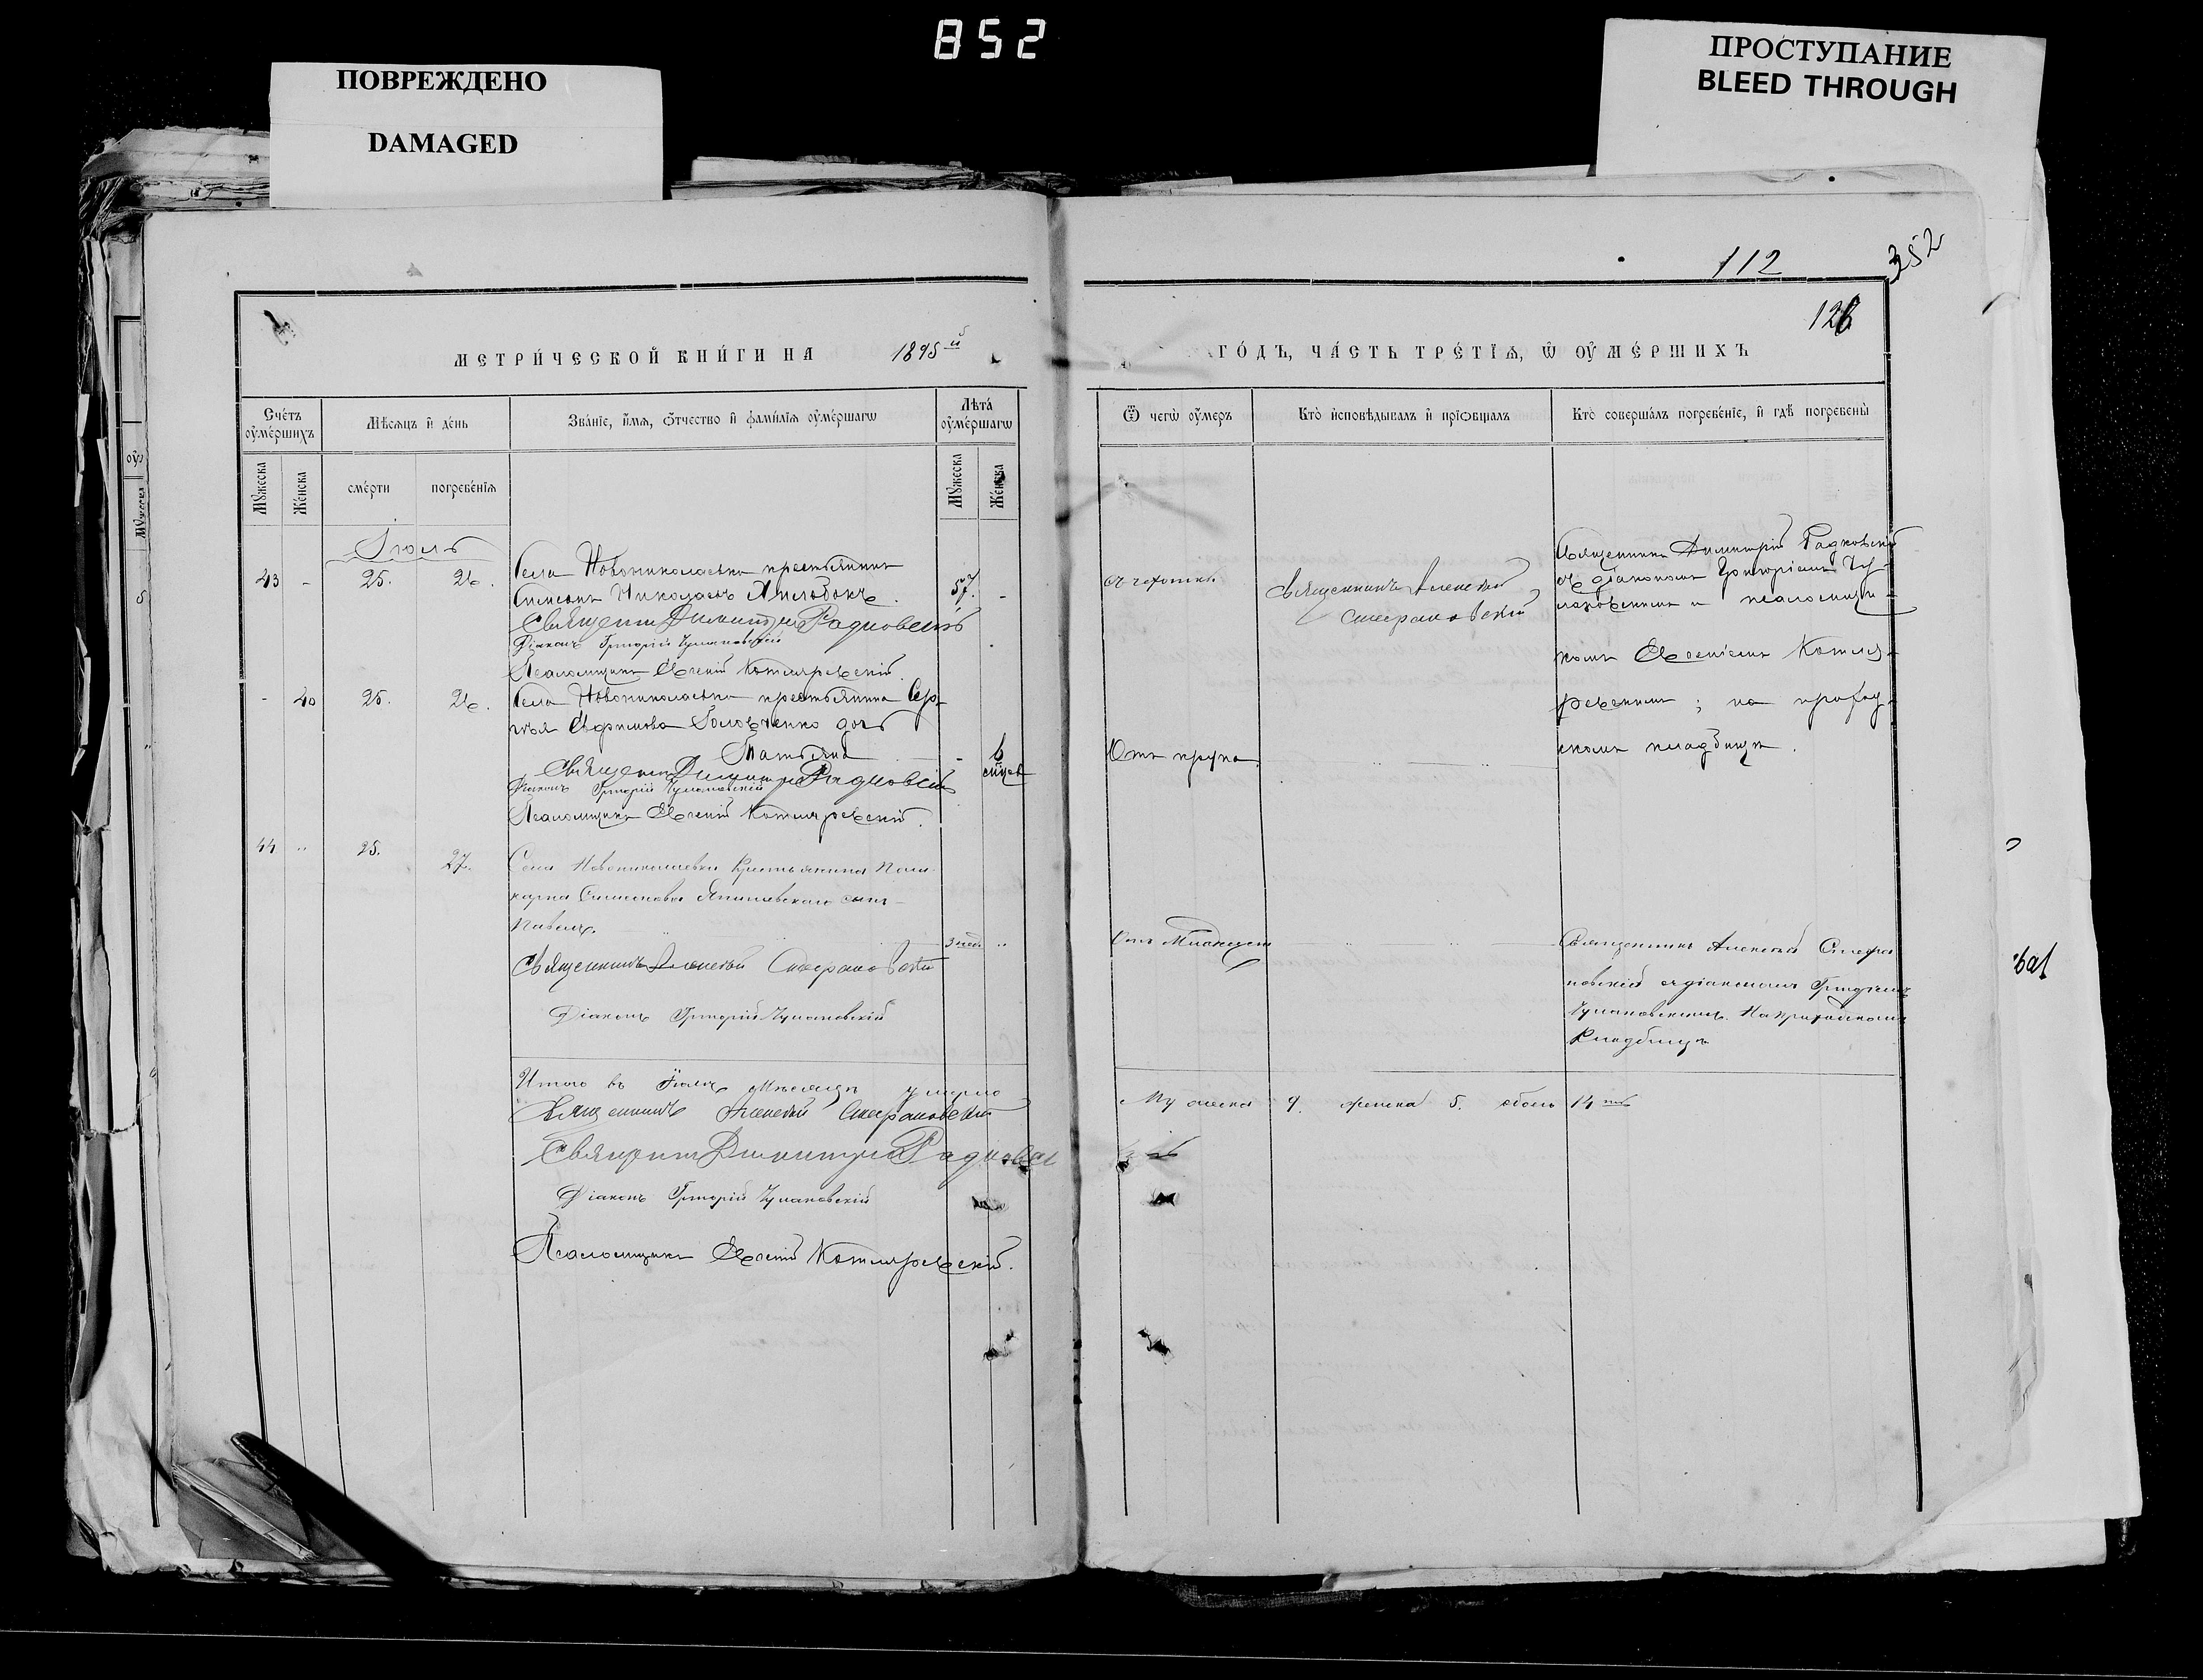 852
ПОВРЕЖДЕНО
DAMAGED
ПРОСТУПАНИЕ
BLEED THROUGH
112
352
126
МЕТРИ́ЧЕСКОЙ КНИ́ГИ НА 1895й
ГО́ДЪ, ЧА́СТЬ ТРЕ́ТІѦ, Ѿ ОУ҆МЕ́РШИХЪ
Сче́тъ оу҆ме́ршихъ
Мѣ́сѧцъ и҆ де́нь
Зва́нїе, и҆́мѧ, ѻ҆́тчество и҆ фами́лїѧ оу҆ме́ршагѡ
Лѣта̀ оу҆ме́ршагѡ
Ѿ чегѡ̀ оу҆́меръ
Кто̀ и҆сповѣ́дывалъ и҆ прїѻбща́лъ
Кто̀ соверша́лъ погребе́нїе, и҆ гдѣ̀ погребены̀
Мꙋ́жеска
Же́нска
сме́рти
погребе́нїѧ
Мꙋ́жеска
Же́нска
Іюль
43 - 25. 26.
Села Новониколаевки крестьянинъ
Симеонъ Николаевъ
57. -
Священникъ Димитрій Радковскій
Діаконъ Григорій Чулановскій
Псаломщикъ Евгеній Котляревскій.
чахотки
Священникъ Алексѣй
Стефановскій
Священникъ Димитрій Радковскій
съ діакономъ Григоріемъ Чу-
лановскимъ и псаломщи-
комъ Евгеніемъ Котля-
ревскимъ; на приход-
скомъ кладбищѣ.
- 40 25. 26.
Села Новониколаевки крестьянина Сер-
гѣя Ефимова Головченко дочь
Татьяна
- 6
Священникъ Димитрій Радковскій
Діаконъ Григорій Чулановскій
Псаломщикъ Евгеній Котляревскій.
Отъ крупа
44 " 25. 27.
Села Новониколаевки Крестьянина Поли-
карпа Симеонова сынъ
Павелъ.
3 нед. "
Священникъ Алексѣй Стефановскій
Діаконъ Григорій Чулановскій
Отъ
Священникъ Алексѣй Стефа
новскій съ діакономъ Григоріемъ
Чулановскимъ. На приходскомъ
Кладбищѣ
Итого въ Іюлѣ мѣсяцѣ умерло
Мужеска 9. женска 5. обоего 14
Священникъ Алексѣй Стефановскій
Священникъ Димитрій Радковскій
Діаконъ Григорій Чулановскій
Псаломщикъ Евгеній Котляревскій.